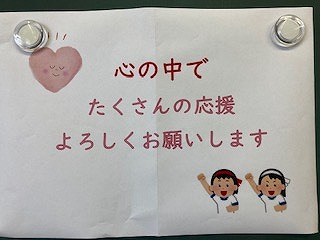 心の中で
たくさんの応援
よろしくお願いします